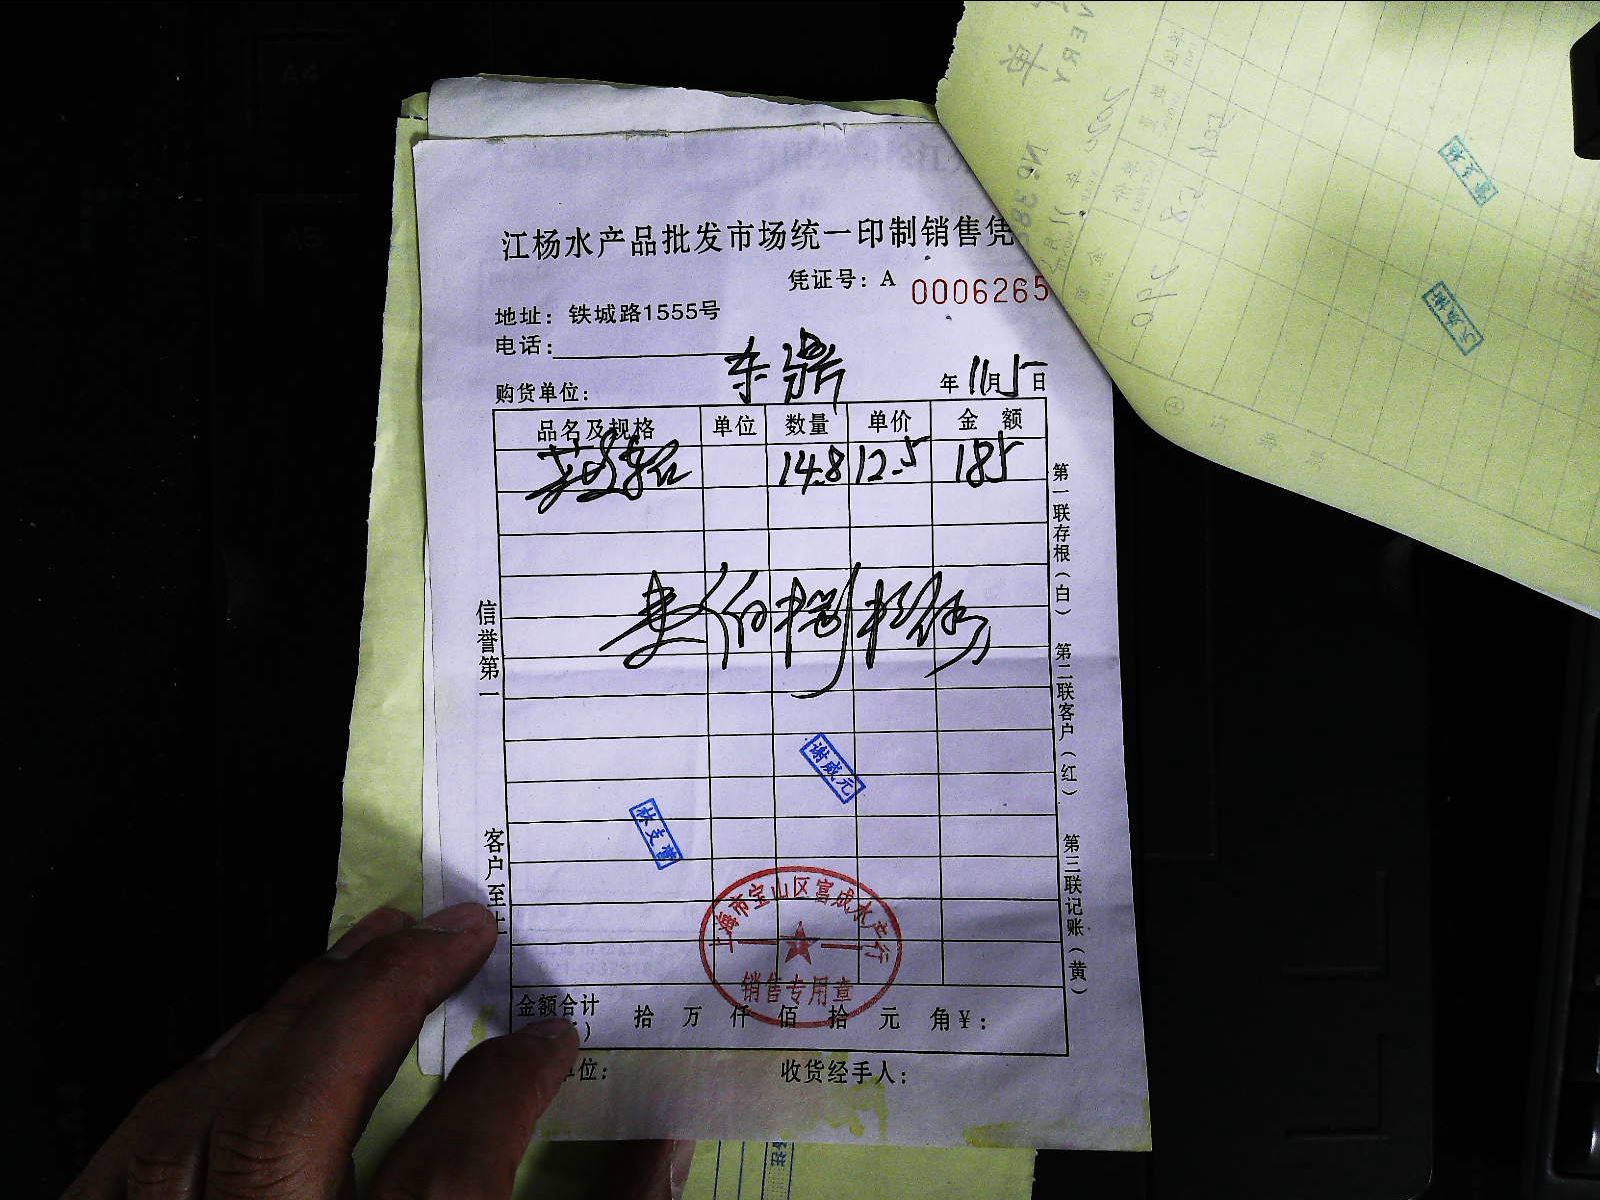 江杨水产品批发市场统一印制销售凭
凭证号：A 0006265
地址：铁城路1555号
电话：
购货单位： 东鼎 年11月15日
品名及规格 单位 数量 单价 金 额
14.8 12.5 185
壹佰捌拾伍
信誉第一
客户至上
第一联存根（白） 第二联客户（红） 第三联记账（黄）
谢成元
林支营
上海市宝山区富成水产行
销售专用章
金额合计 拾 万 仟 佰 拾 元 角￥：
单位： 收货经手人：